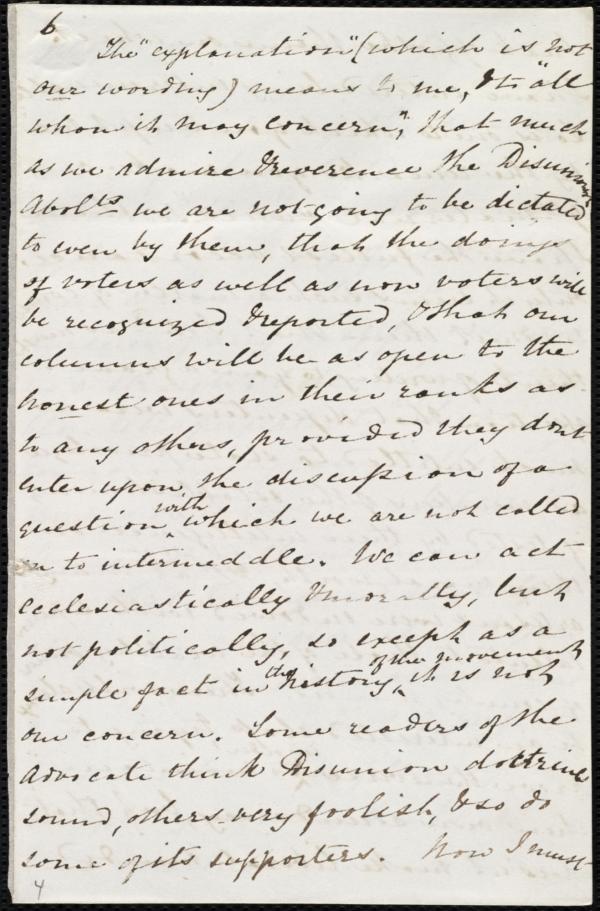 6
The "explanation" (which is not
our wording) means to me, & to "all
whom it may concern", that much
as we admire & reverence the Disunion
Abolts we are not going to be dictated
to even by them, that the doings
of voters as well as non voters will
be recognized & reported, & that our
columns will be as open to the
honest ones in their ranks as
to any others, provided they dont
enter upon the discussion of a
question with which we are not called
on to intermeddle. We can act
ecclesiastically & morally, but
not politically, so except as a
simple fact in the history of the movement, it is not
our concern. Some readers of the
Advocate think Disunion doctrines
sound, others very foolish, & so do
some of its supporters. Now I must
4